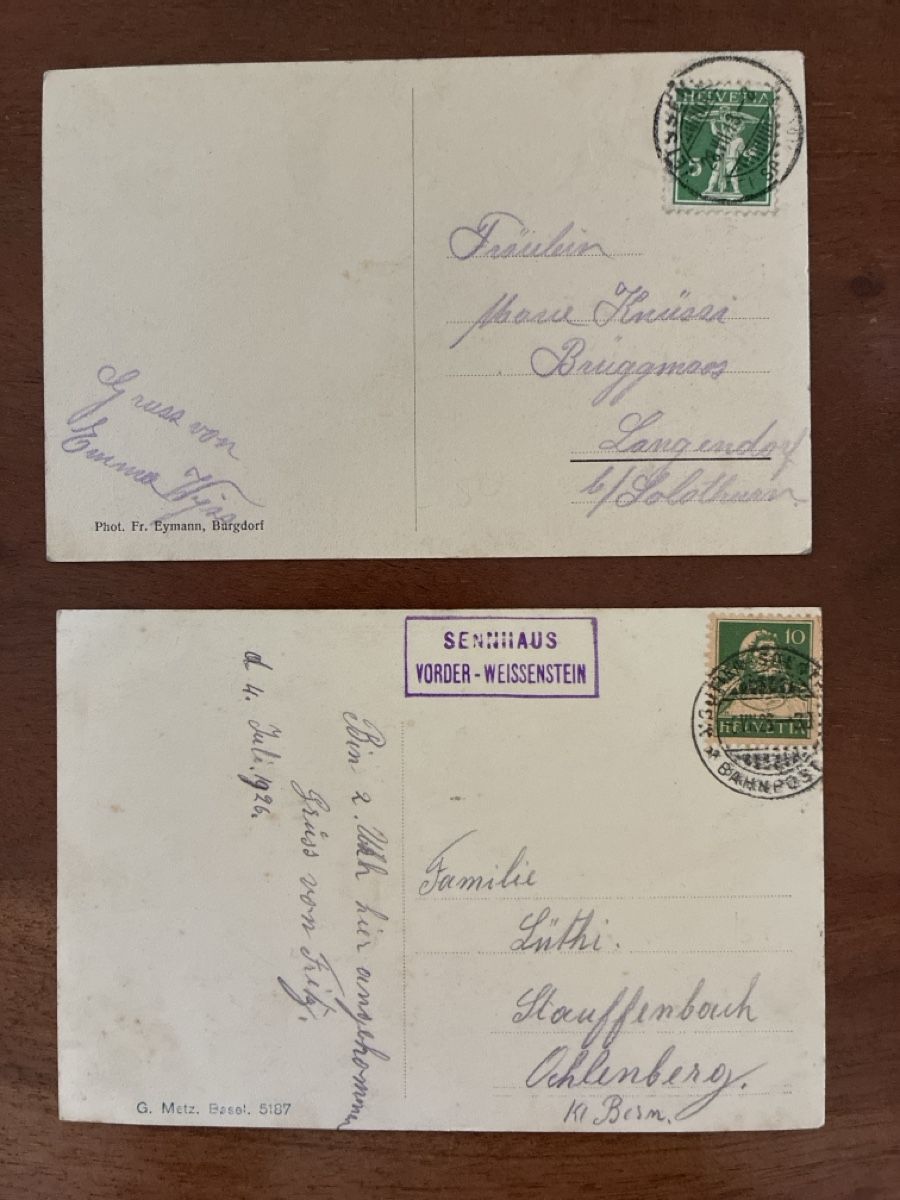 HELVETIA
5
Fräulein
Marie Knüssi
Brüggmoos
Langendorf
b/Solothurn
Gruss von
Emma Wyss
Phot. Fr. Eymann, Burgdorf
SENNHAUS
VORDER-WEISSENSTEIN
10
HELVETIA
BAHNPOST
d 4. Juli. 1926.
Bin 2. Uhh hier angekommen
Grüss von Fritz.
Familie
Lüthi.
Stauffenbach
Ochlenberg.
Kt Bern.
G. Metz. Basel. 5187